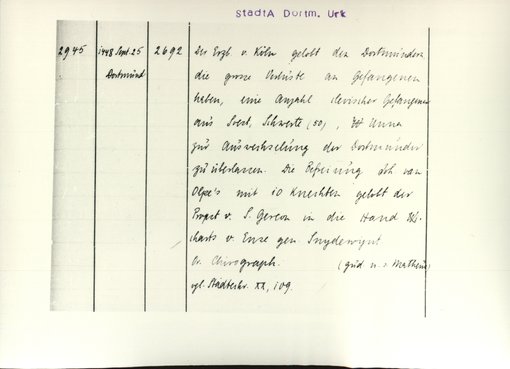 StadtA Dortm. Urk
2945 1448 Sept. 25 2692 Der Erzb. v. Köln gelobt den Dortmundern
Dortmund die grosse Verluste an Gefangenen
haben, eine Anzahl clevischer Gefangenen
aus Soest, Schwerte (50), Unna
zur Auswechselung der Dortmunder
zu überlassen. Die Befreiung Joh. van
Olpe's mit 10 Knechten gelobt der
Propst v. S. Gereon in die Hand
charts v. Enze gen. Snydewynt
Or. Chirograph. (qud n. s. Mathei)
vgl. Städtechr. XX, 109.